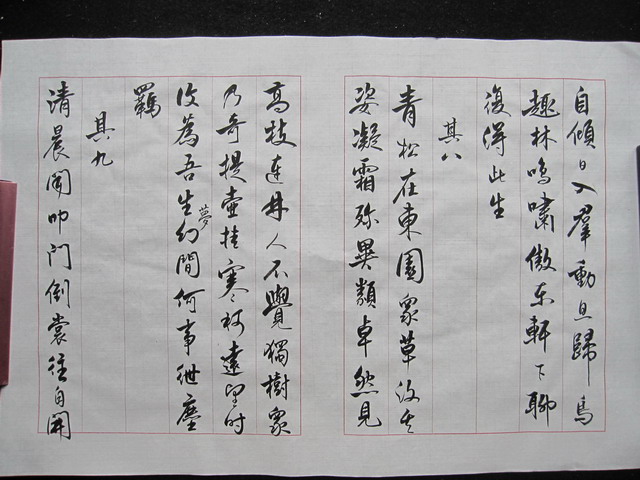 自傾日入羣動息歸鳥
趣林鳴嘯傲东軒下聊
復得此生
其八
青松在東園眾草沒其
姿凝霜殄異類卓然見
高枝連林人不覺獨樹眾
乃奇提壺挂寒柯遠望时
復為吾生夢幻間何事紲塵
羈
其九
清晨聞叩門倒裳往自開